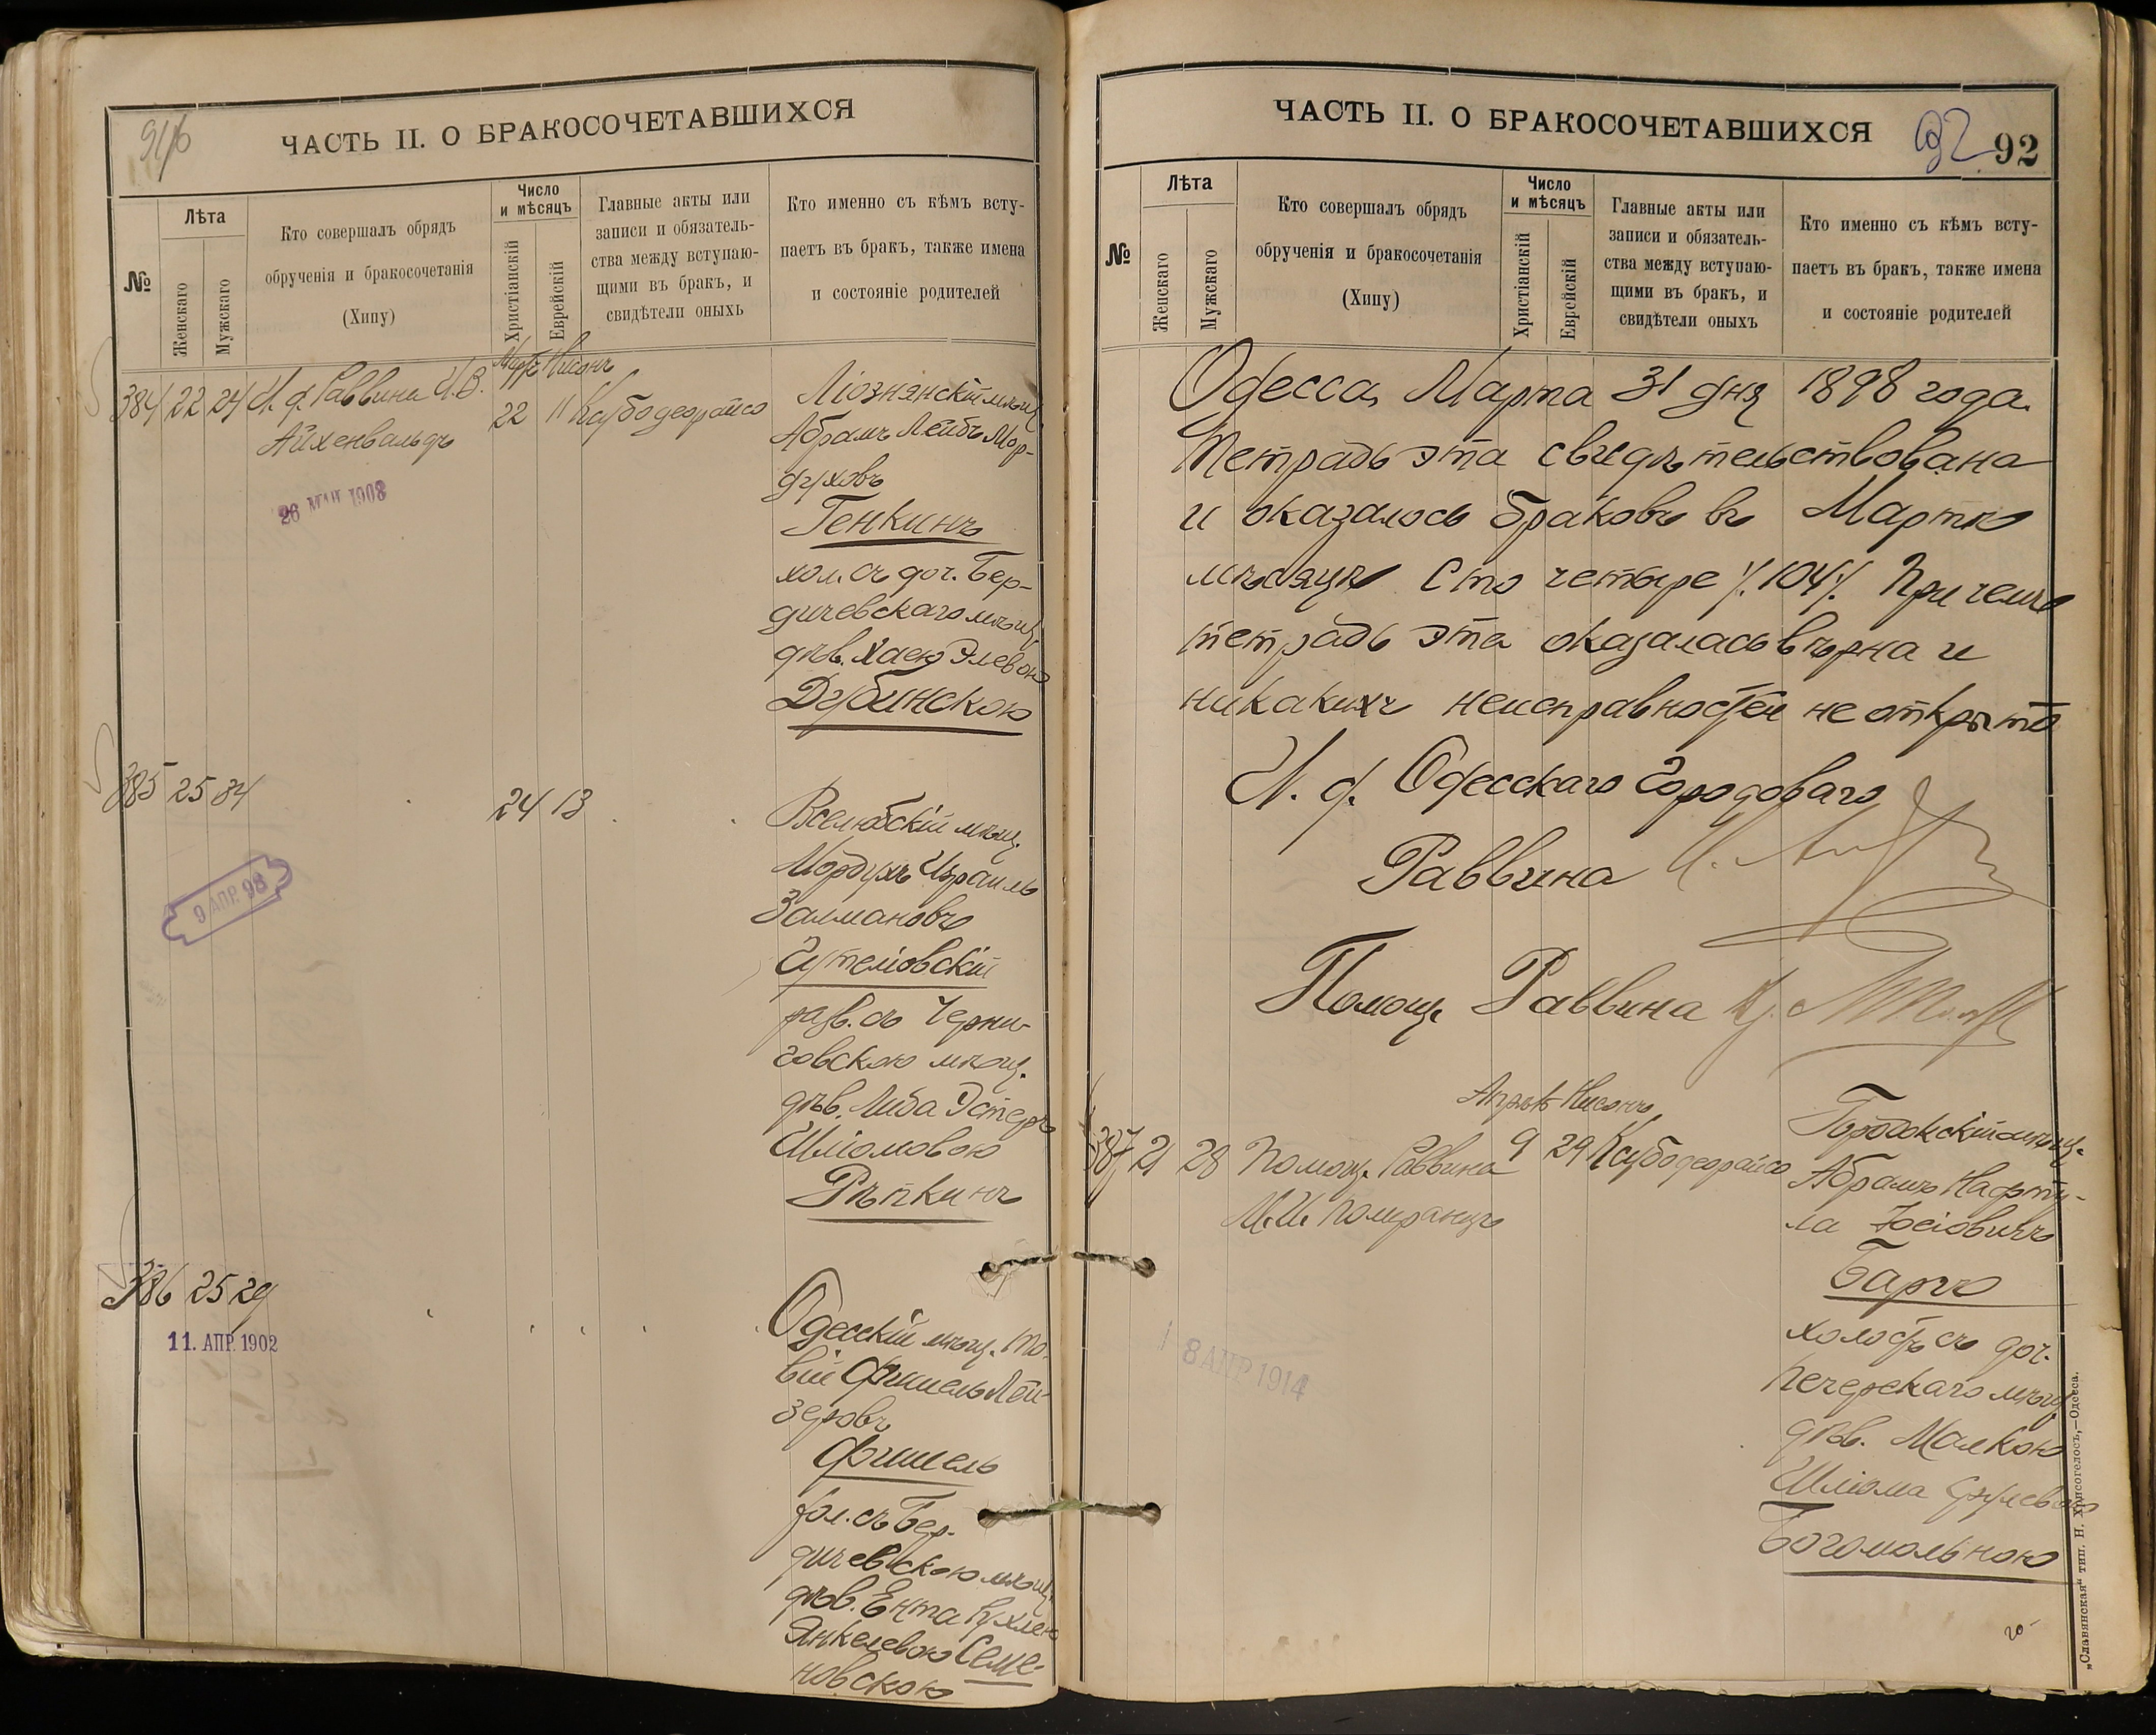 91/б
ЧАСТЬ II. О БРАКОСОЧЕТАВШИХСЯ
№
Лѣта
Женскаго
Мужскаго
Кто совершалъ обрядъ
обрученія и бракосочетанія
(Хипу)
Число
и мѣсяцъ
Христіанскій
Еврейскій
Главные акты или
записи и обязатель-
ства между вступаю-
щими въ бракъ, и
свидѣтели оныхъ
Кто именно съ кѣмъ всту-
паетъ въ бракъ, также имена
и состояніе родителей
Мартъ Нисонъ
384 22 24 И. д. Раввина И.В. 22 11 Каубодеорайсо
Айхенвальдъ
1908
Ліознянскій мѣщ.
Абрамъ Лейбъ Мор-
духовъ
Генкинъ
хол. съ доч. Бер-
дичевскаго мѣщ.
дѣв. Хаею Элевою
Дубинскою
385 25 34 24 13
9 АПР. 98
Вселюбскій мѣщ.
Мордухъ Израиль
Залмановъ
разв. съ Черни-
говскою мѣщ.
дѣв. Либа Эстеръ
Шліомовою
Рѣпкинъ
386 25 29
11. АПР. 1902
Одесскій мѣщ. То-
вій Фишель Лей-
зеровъ
Фишель
хол. съ Бер-
дичевскою мѣщ.
дѣв. Ента Рухлею
Янкелевою Семе-
новскою
ЧАСТЬ II. О БРАКОСОЧЕТАВШИХСЯ
92
92
№
Лѣта
Женскаго
Мужскаго
Кто совершалъ обрядъ
обрученія и бракосочетанія
(Хипу)
Число
и мѣсяцъ
Христіанскій
Еврейскій
Главные акты или
записи и обязатель-
ства между вступаю-
щими въ бракъ, и
свидѣтели оныхъ
Кто именно съ кѣмъ всту-
паетъ въ бракъ, также имена
и состояніе родителей
Одесса, Марта 31 дня 1898 года.
Тетрадь эта свидѣтельствована
и оказалось браковъ въ Мартѣ
мѣсяцѣ Сто четыре ./.104./. При чемъ
тетрадь эта оказалась вѣрна и
никакихъ неисправностей не открыто
И. д. Одесскаго Городоваго
Раввина
Помощ. Раввина
Апрѣль Нисонъ
387 21 28 Помощ. Раввина 9 29 Каубодеорайсо
М.И. Померанцъ
8 АПР 1914
Городокскій мѣщ.
Абрамъ Нафту-
ла Іосіовичъ
Баръ
холост. съ доч.
Печерскаго мѣщ.
дѣв. Малкою
Шліома
Богомольною
„Славянская“ тип. Н. Хрисогелосъ,—Одесса.